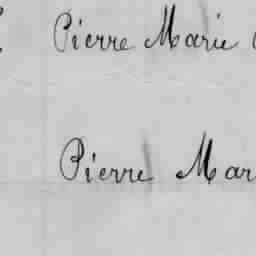 Pierre Marie
Pierre Mar